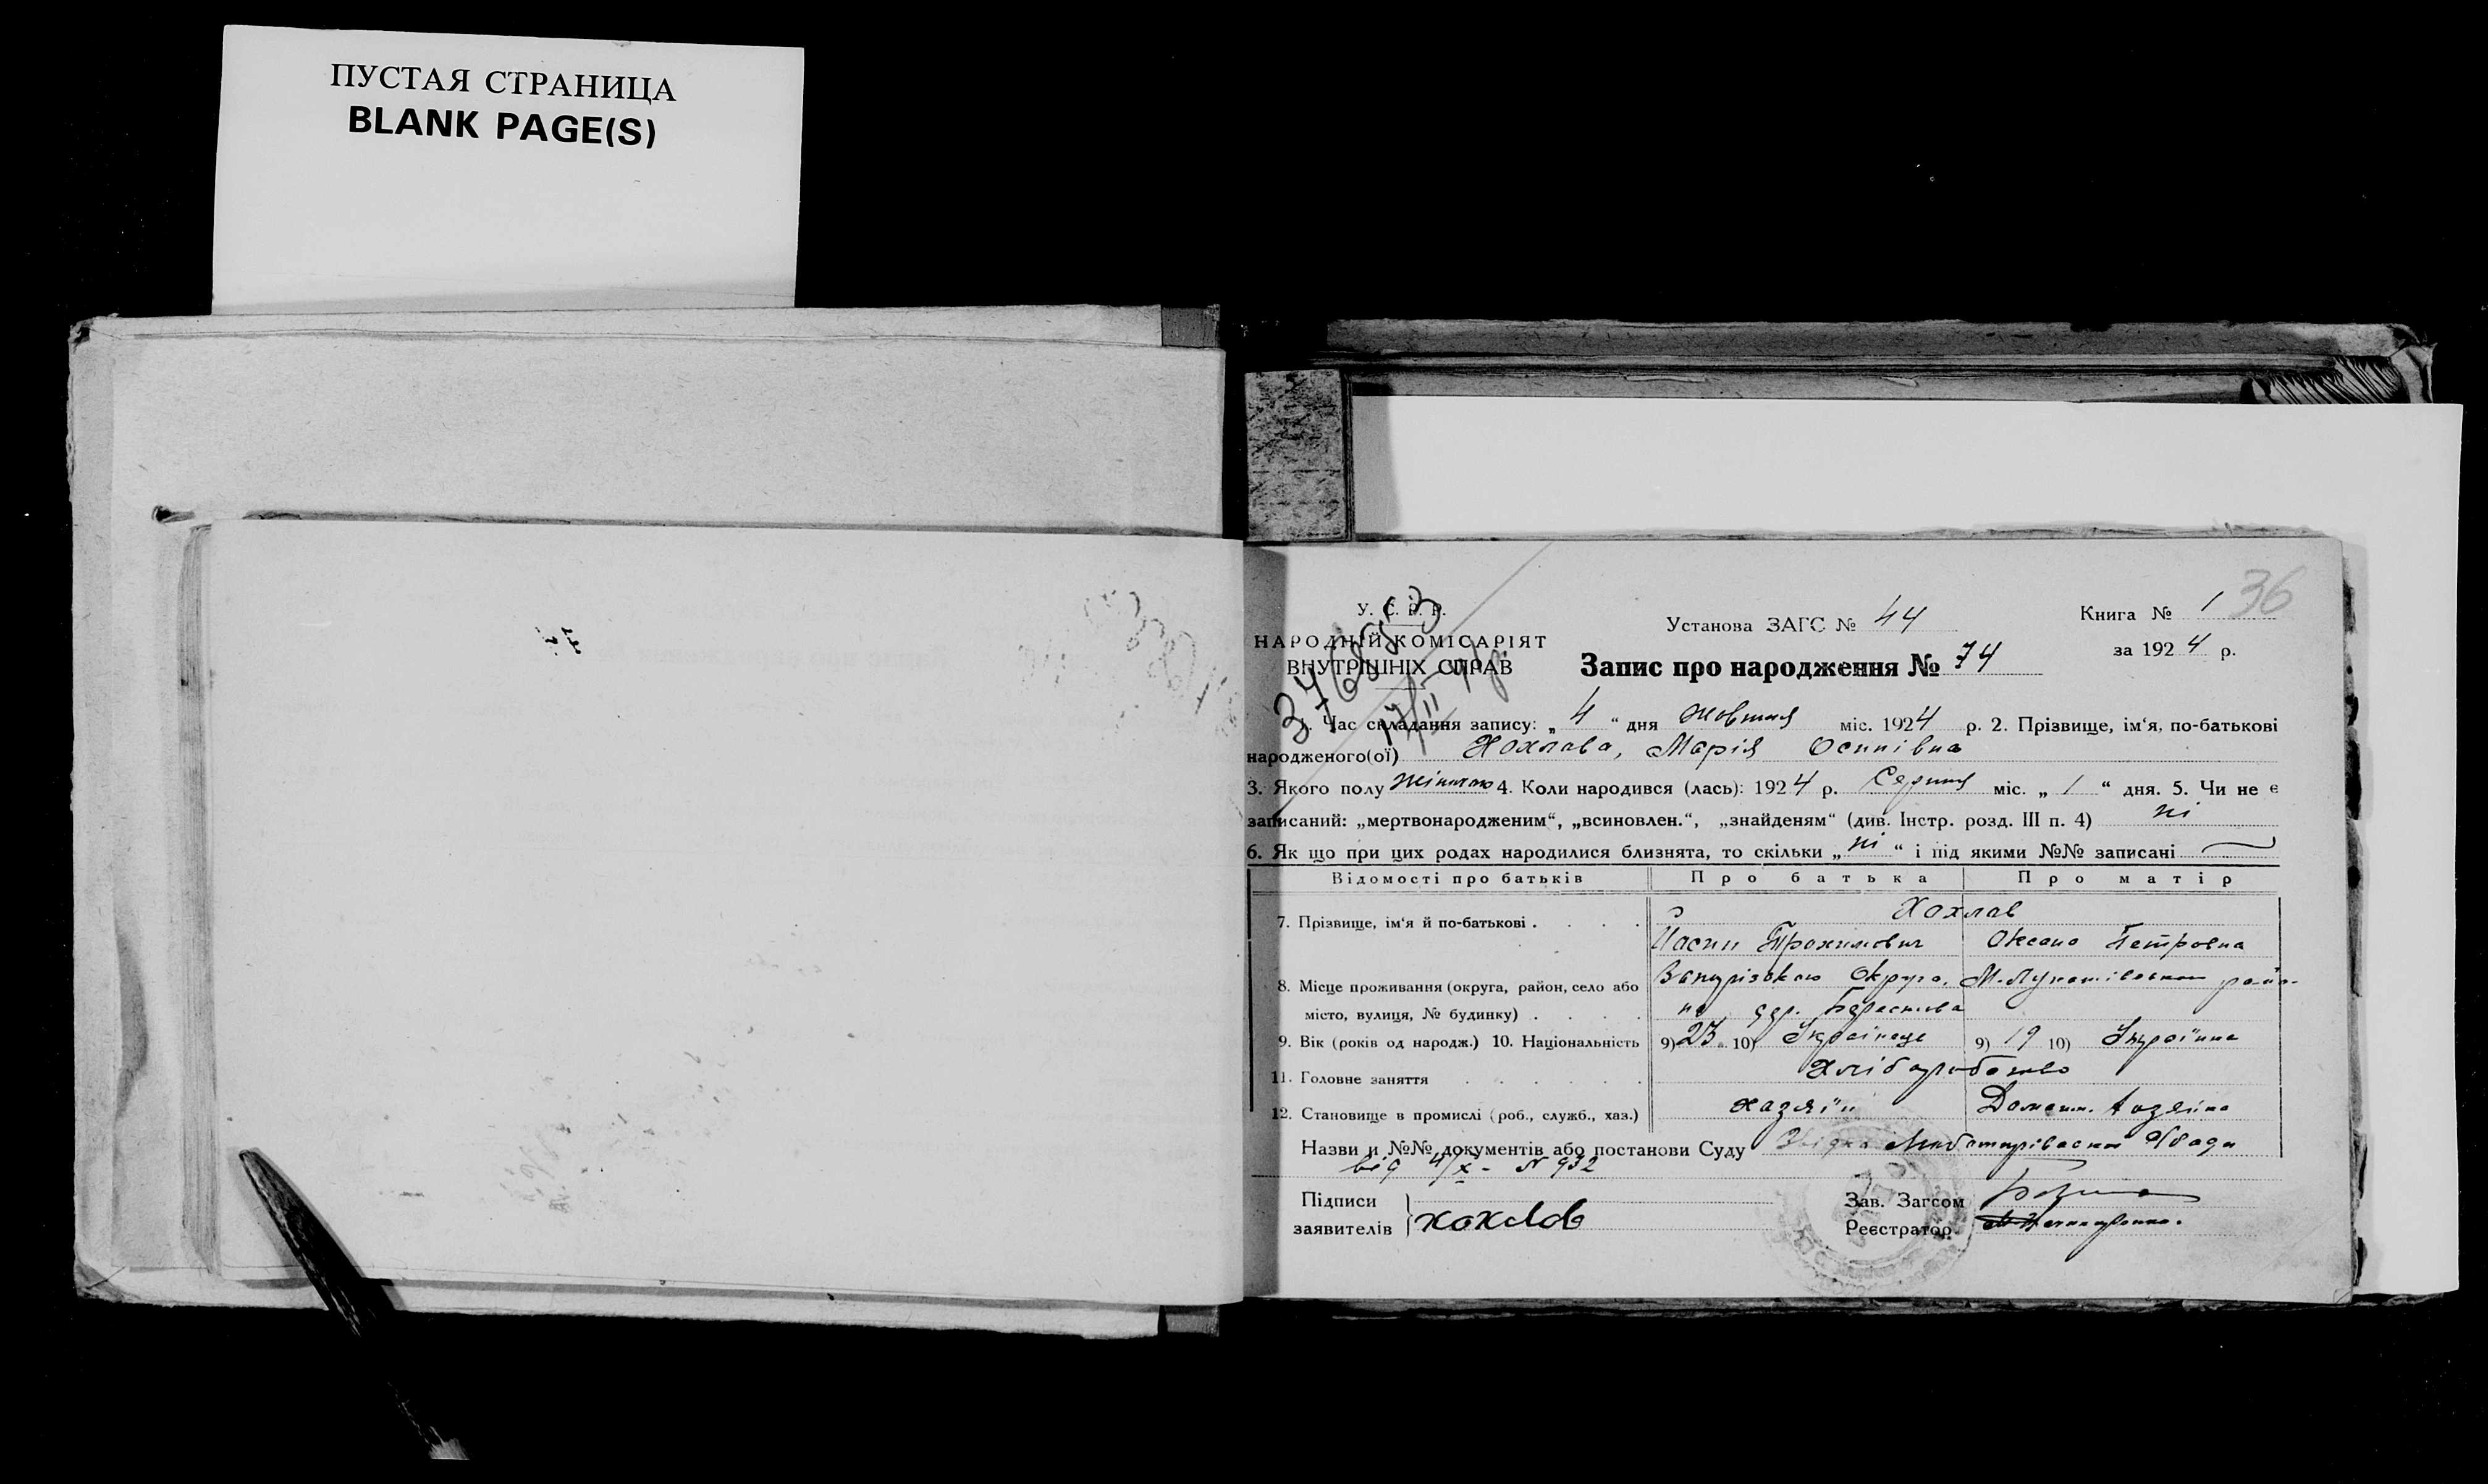 ПУСТАЯ СТРАНИЦА
BLANK PAGE(S)
У. С. Р. Р.
НАРОДНІЙ КОМІСАРІЯТ
ВНУТРІШНІХ СПРАВ
Установа ЗАГС № 44
Книга № 1 36
за 1924 р.
Запис про народження № 74
1. Час складання запису: „ 4 “ дня Жовтня міс. 1924 р. 2. Прізвище, ім‘я, по-батькові
народженого(ої) Хохлова, Марія Осипівна
3. Якого полу жіночою 4. Коли народився (лась): 1924 р. Серпня міс. „ 1 “ дня. 5. Чи не є
записаний: „мертвонародженим“, „всиновлен.“, „знайденям“ (див. Інстр. розд. III п. 4) ні
6. Як що при цих родах народилися близнята, то скільки „ ні “ і під якими №№ записані
Відомості про батьків Про батька Про матір
7. Прізвище, ім‘я й по-батькові . . . . Хохлов
Йосип Трохимович Оксана Петровна
8. Місце проживання (округа, район, село або Запорізькою Округа, М-Лукашівською райо-
місто, вулиця, № будинку) . . . . на дер. Берестова
9. Вік (років од народж.) 10. Національність 9) 23 10) Українець 9) 19 10) Українка
11. Головне заняття . . . . . . Хліборобство
12. Становище в промислі (роб., служб., хаз.) хазяїн Домашн. хазяйка
Назви и №№ документів або постанови Суду
від 4/X - N 932
Підписи
заявителів хохлов
Зав. Загсом
Реєстратор